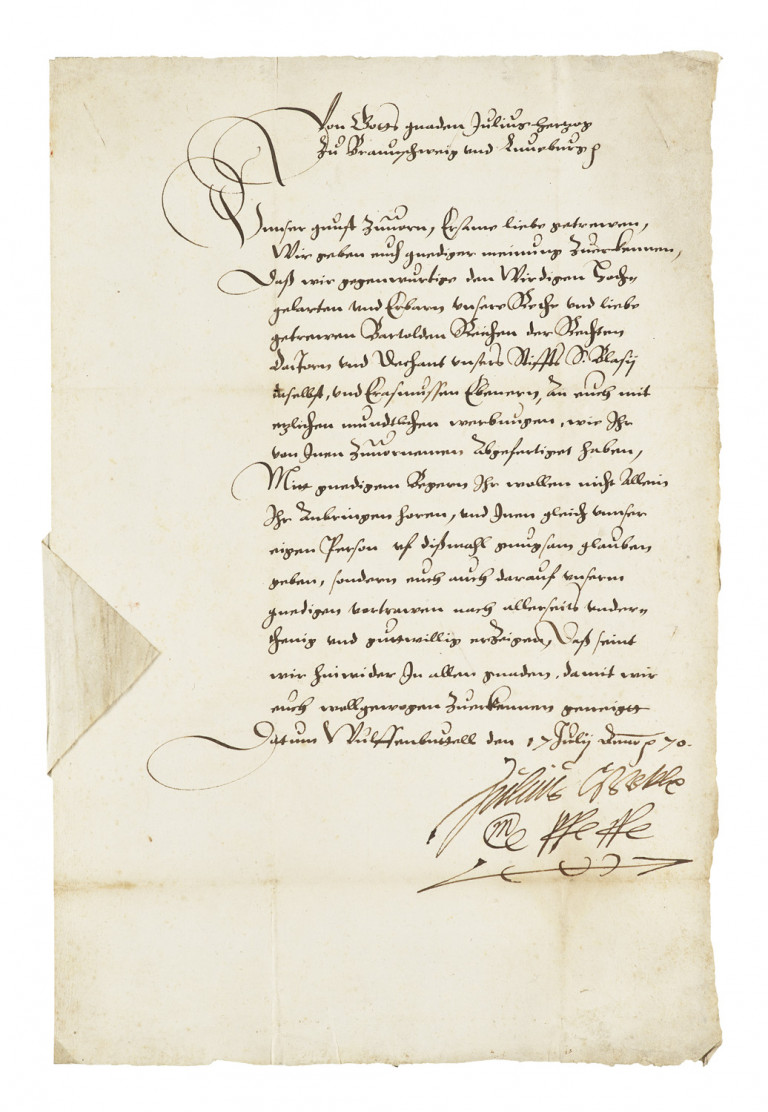 Von Gotts gnaden Julius Hertzog
Zu Braunschweig und Luneburg p
Vnnser gunst Zuuorn, Ersame liebe getrewen,
Wir geben euch gnediger meinung Zuerkennen,
Daß wir gegenwurtige den Wirdigen Hoch
gelarten vnd Erbarn vnsere Rethe vnd liebe
getrewen Bartolden Reichen der Rechten
Doctorn vnd Dechant vnsers Stiffts S. Blasij
daselbst, vnd Erasmussen Ebenern, An euch mit
etzlichen mundtlichen werbungen, wie Ihr
von Inen Zuuornemen Abgefertiget haben,
Mitt gnedigem Begern Ihr wollen nicht Allein
Ihr Anbringen horen, vnd Inen gleich vnnser
eigen Person vf dißmahl gnugsam glauben
geben, sondern euch auch darauf vnserm
gnedigen vortrawen nach allerseits vnder
thenig vnd guttwillig erzeigen, Daß seint
wir hinwider In allen gnaden, damit wir
euch wollgewogen Zuerkennen geneigtt
Datum Wulffenbuttell den 17 Julij Anno p 70.
Julius